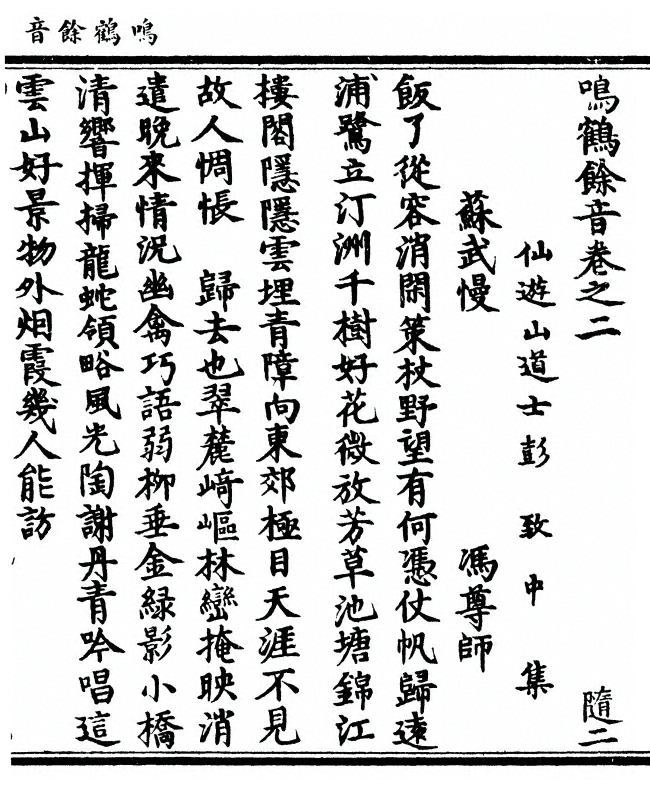 鳴鶴餘音
鳴鶴餘音卷之二 隨二
仙遊山道士彭致中集
蘇武慢 馮尊師
飯了從容消閑策杖野望有何憑仗帆歸遠
浦鷺立汀洲千樹好花微放芳草池塘錦江
樓閣隱隱雲埋青障向東郊極目天涯不見
故人惆悵 歸去也翠麓崎嶇林巒掩映消
遣晚來情況幽禽巧語弱柳垂金綠影小橋
清響揮掃龍蛇領略風光陶謝丹青吟唱這
雲山好景物外烟霞幾人能訪